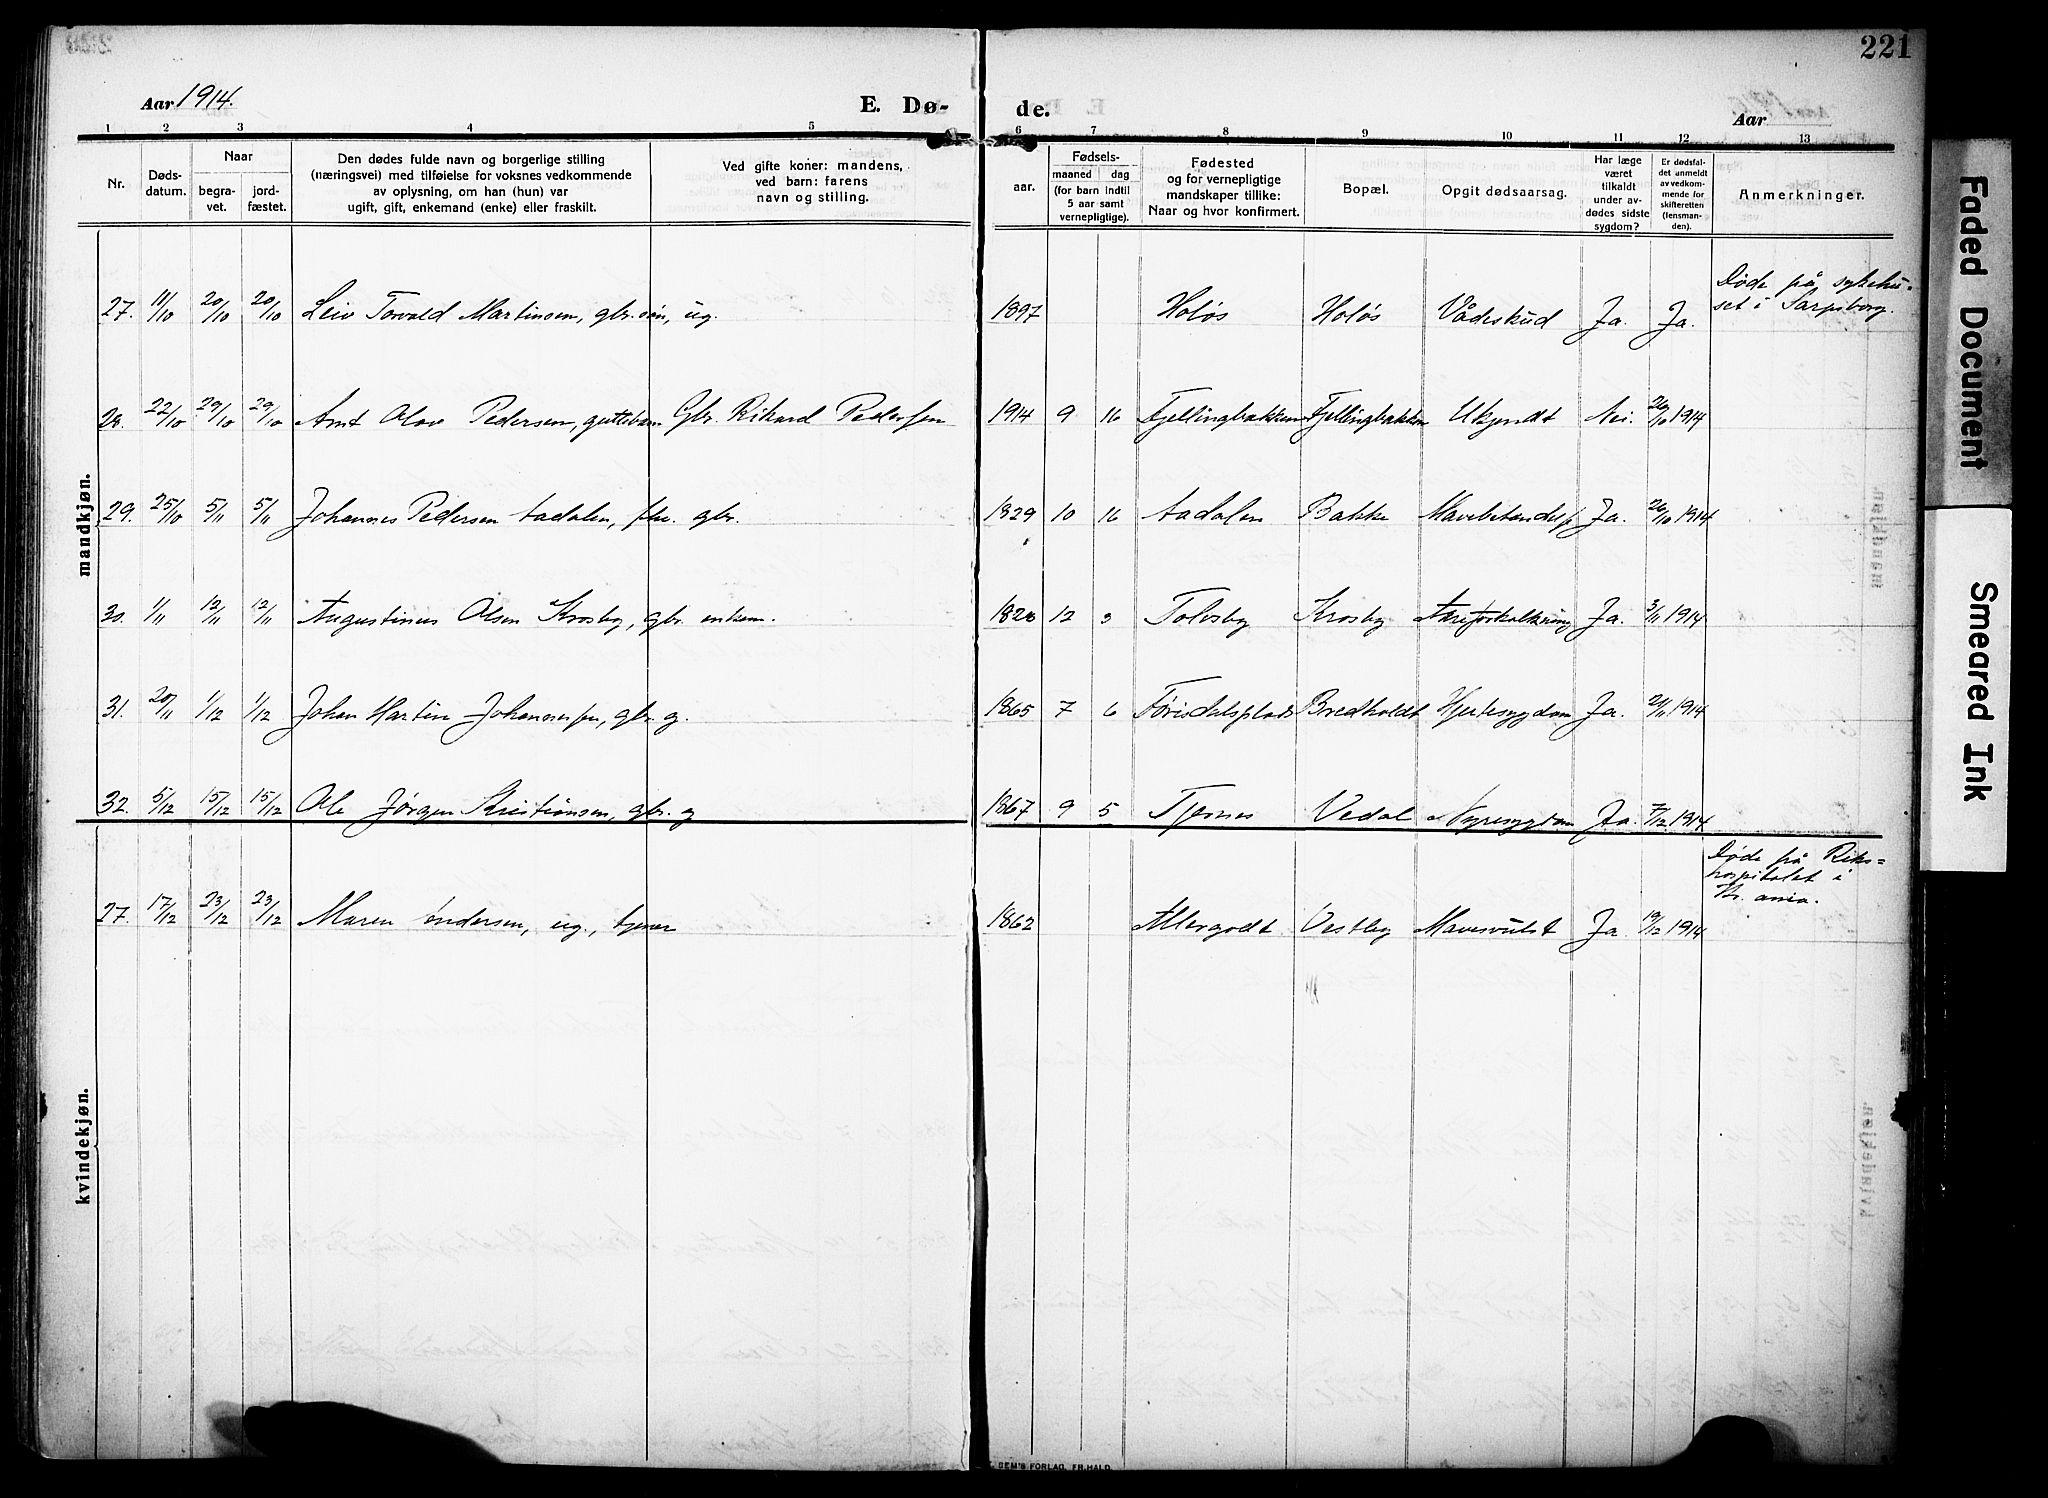 221
Aar 1914.
E. Dø-
de.
Aar
1 2 3 4 5 6 7 8 9 10 11 12 13
Nr.
Døds-
datum.
Naar
begra-
vet.
jord-
fæstet.
Den dødes fulde navn og borgerlige stilling
(næringsvei) med tilføielse for voksnes vedkommende
av oplysning, om han (hun) var
ugift, gift, enkemand (enke) eller fraskilt.
Ved gifte koner: mandens,
ved barn: farens
navn og stilling.
Fødsels-
aar.
maaned dag
(for barn indtil
5 aar samt
vernepligtige).
Fødested
og for vernepligtige
mandskaper tillike:
Naar og hvor konfirmert.
Bopæl.
Opgit dødsaarsag.
Har læge
været
tilkaldt
under av-
dødes sidste
sygdom?
Er dødsfal-
det anmeldt
av vedkom-
mende for
skifteretten
(lensman-
den).
Anmerkninger.
mandkjøn.
27. 11/10 20/10 20/10 Leiv Torvald Martinsen, gbr. søn, ug. 1897 Holøs Holøs Vådeskud Ja. Ja.
Døde på sykehu-
set i Sarpsborg.
28. 22/10 29/10 29/10 Arnt Olav Pedersen, guttebarn Gbr. Rikard Pedersen 1914 9 16 Fjellingbakken Fjellingbakken Ukjendt Nei. 26/10 1914
29. 25/10 5/11 5/11 Johannes Pedersen Aadalen, fhv. gbr. 1829 10 16 Aadalen Bakke Ja. 26/10 1914
30. 1/11 12/11 12/11 Augustinus Olsen Krosby, gbr. enkem. 1828 12 3 Tolvsby Krosby Aareforkalkning Ja. 3/11 1914
31. 20/11 1/12 1/12 Johan Martin Johannessen, gbr. g. 1865 7 6 Førisdalsplads Bredholdt Hjertesygdom Ja. 21/11 1914
32. 5/12 15/12 15/12 Ole Jørgen Kristiansen, gbr. g 1867 9 5 Tjernes Vedal Nyresygdom Ja 7/12 1914
kvindekjøn.
27. 17/12 23/12 23/12 Maren Andersen, ug., tjener 1862 Allergodt Vestby Mavesvulst Ja 19/12 1914
Døde på Riks-
hospitalet i
Kr. ania.
DEM'S FORLAG, FR.HALD.
Faded Document
Smeared Ink